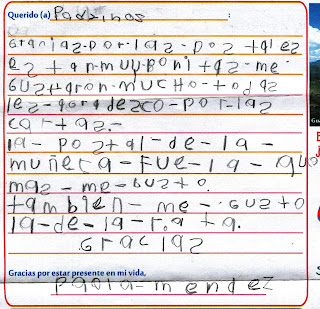 Querido (a) Padrinos :
Graciaz-por-laz-poz+alez
ez+an-muy-boni+az-me-
guz+aron-mucho-+odaz
lez-agradezco-por-laz
car+az.-
la-poz+al-de-la-
muñeca-fue-la-que
maz-me-guz+o.
+ambien-me-guz+o
la-de-la-ra+a.
Graciaz
Gracias por estar presente en mi vida,
paola-mendez